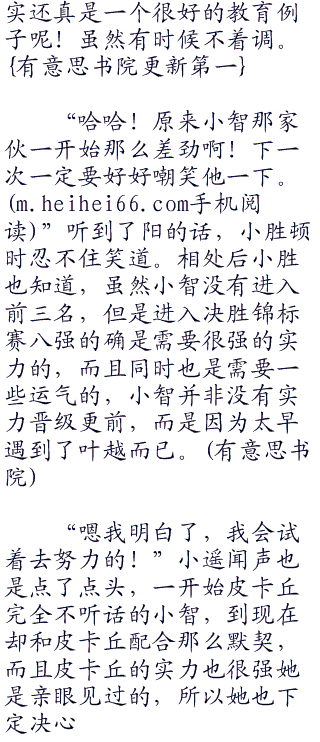 实还真是一个很好的教育例
子呢！虽然有时候不着调。
{有意思书院更新第一}
“哈哈！原来小智那家
伙一开始那么差劲啊！下一
次一定要好好嘲笑他一下。
(m.heihei66.com手机阅
读)”听到了阳的话，小胜顿
时忍不住笑道。相处后小胜
也知道，虽然小智没有进入
前三名，但是进入决胜锦标
赛八强的确是需要很强的实
力的，而且同时也是需要一
些运气的，小智并非没有实
力晋级更前，而是因为太早
遇到了叶越而已。(有意思书
院)
“嗯我明白了，我会试
着去努力的！”小遥闻声也
是点了点头，一开始皮卡丘
完全不听话的小智，到现在
却和皮卡丘配合那么默契，
而且皮卡丘的实力也很强她
是亲眼见过的，所以她也下
定决心